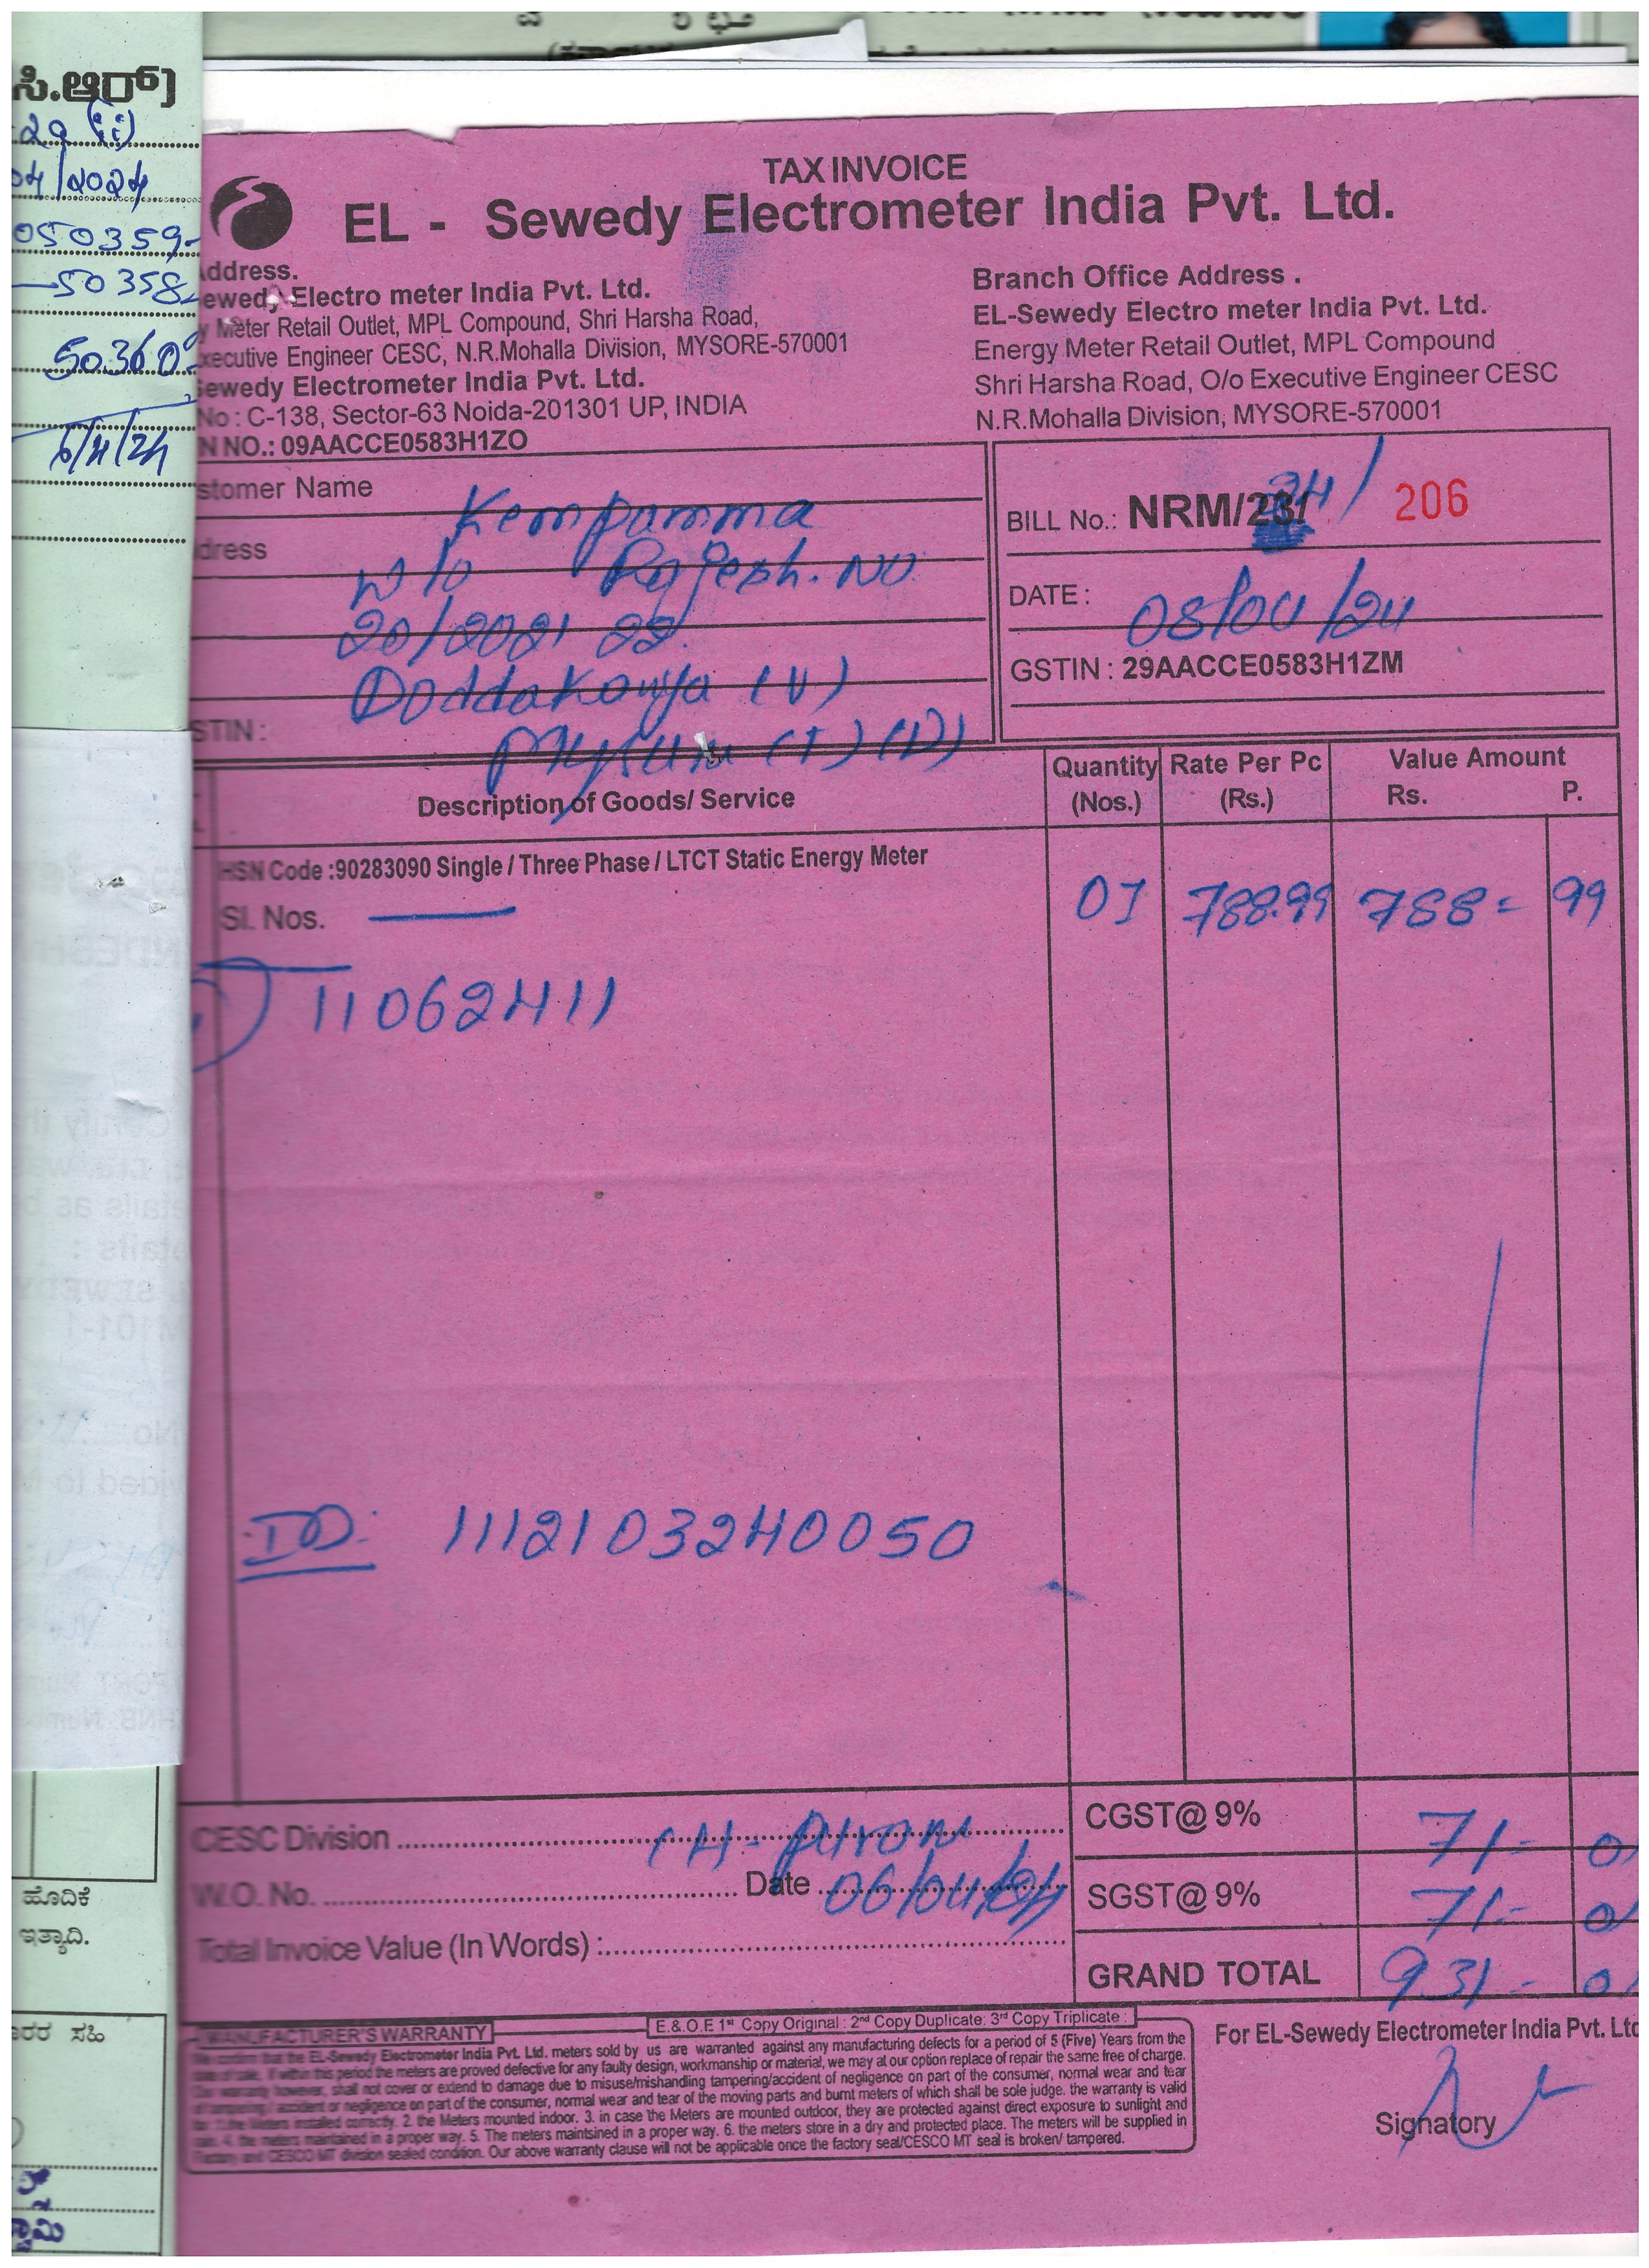 ಸಿ.ಆರ್)
29 (ii)
04/2024
050359-
50358
50360
6/4/24
TAX INVOICE
EL - Sewedy Electrometer India Pvt. Ltd.
ddress.
ewedy Electro meter India Pvt. Ltd.
y Meter Retail Outlet, MPL Compound, Shri Harsha Road,
xecutive Engineer CESC, N.R.Mohalla Division, MYSORE-570001
Sewedy Electrometer India Pvt. Ltd.
No : C-138, Sector-63 Noida-201301 UP, INDIA
N NO.: 09AACCE0583H1ZO
Branch Office Address .
EL-Sewedy Electro meter India Pvt. Ltd.
Energy Meter Retail Outlet, MPL Compound
Shri Harsha Road, O/o Executive Engineer CESC
N.R.Mohalla Division, MYSORE-570001
stomer Name Kempamma
dress W/o Rajesh. No
20/2021 22
Doddakanya (V)
STIN : Mysuru (T) (D)
BILL No.: NRM/23/ 24/ 206
DATE : 08/04/24
GSTIN : 29AACCE0583H1ZM
Description of Goods/ Service Quantity (Nos.) Rate Per Pc (Rs.) Value Amount Rs. P.
HSN Code :90283090 Single / Three Phase / LTCT Static Energy Meter
Sl. Nos. 01 788.99 788= 99
11062411
ID: 1112103240050
CESC Division
W.O. No. Date 06/04/24
Total Invoice Value (In Words) :
CGST@ 9% 71- 0
SGST@ 9% 71- 0
GRAND TOTAL 931- 0
E.&.O.E 1st Copy Original : 2nd Copy Duplicate: 3rd Copy Triplicate :
MANUFACTURER'S WARRANTY
We confirm that the EL-Sewedy Electrometer India Pvt. Ltd. meters sold by us are warranted against any manufacturing defects for a period of 5 (Five) Years from the
date of sale, if within this period the meters are proved defective for any faulty design, workmanship or material, we may at our option replace of repair the same free of charge.
Our warranty however, shall not cover or extend to damage due to misuse/mishandling tampering/accident of negligence on part of the consumer, normal wear and tear
of tampering / accident or negligence on part of the consumer, normal wear and tear of the moving parts and burnt meters of which shall be sole judge. the warranty is valid
for 1 the Meters installed correctly. 2. the Meters mounted indoor. 3. in case the Meters are mounted outdoor, they are protected against direct exposure to sunlight and
rain. 4. the meters maintained in a proper way. 5. The meters maintsined in a proper way. 6. the meters store in a dry and protected place. The meters will be supplied in
factory and CESCO MT division sealed condition. Our above warranty clause will not be applicable once the factory seal/CESCO MT seal is broken/ tampered.
For EL-Sewedy Electrometer India Pvt. Ltd
Signatory
ಹೊದಿಕೆ
ಇತ್ಯಾದಿ.
ರರ ಸಹಿ